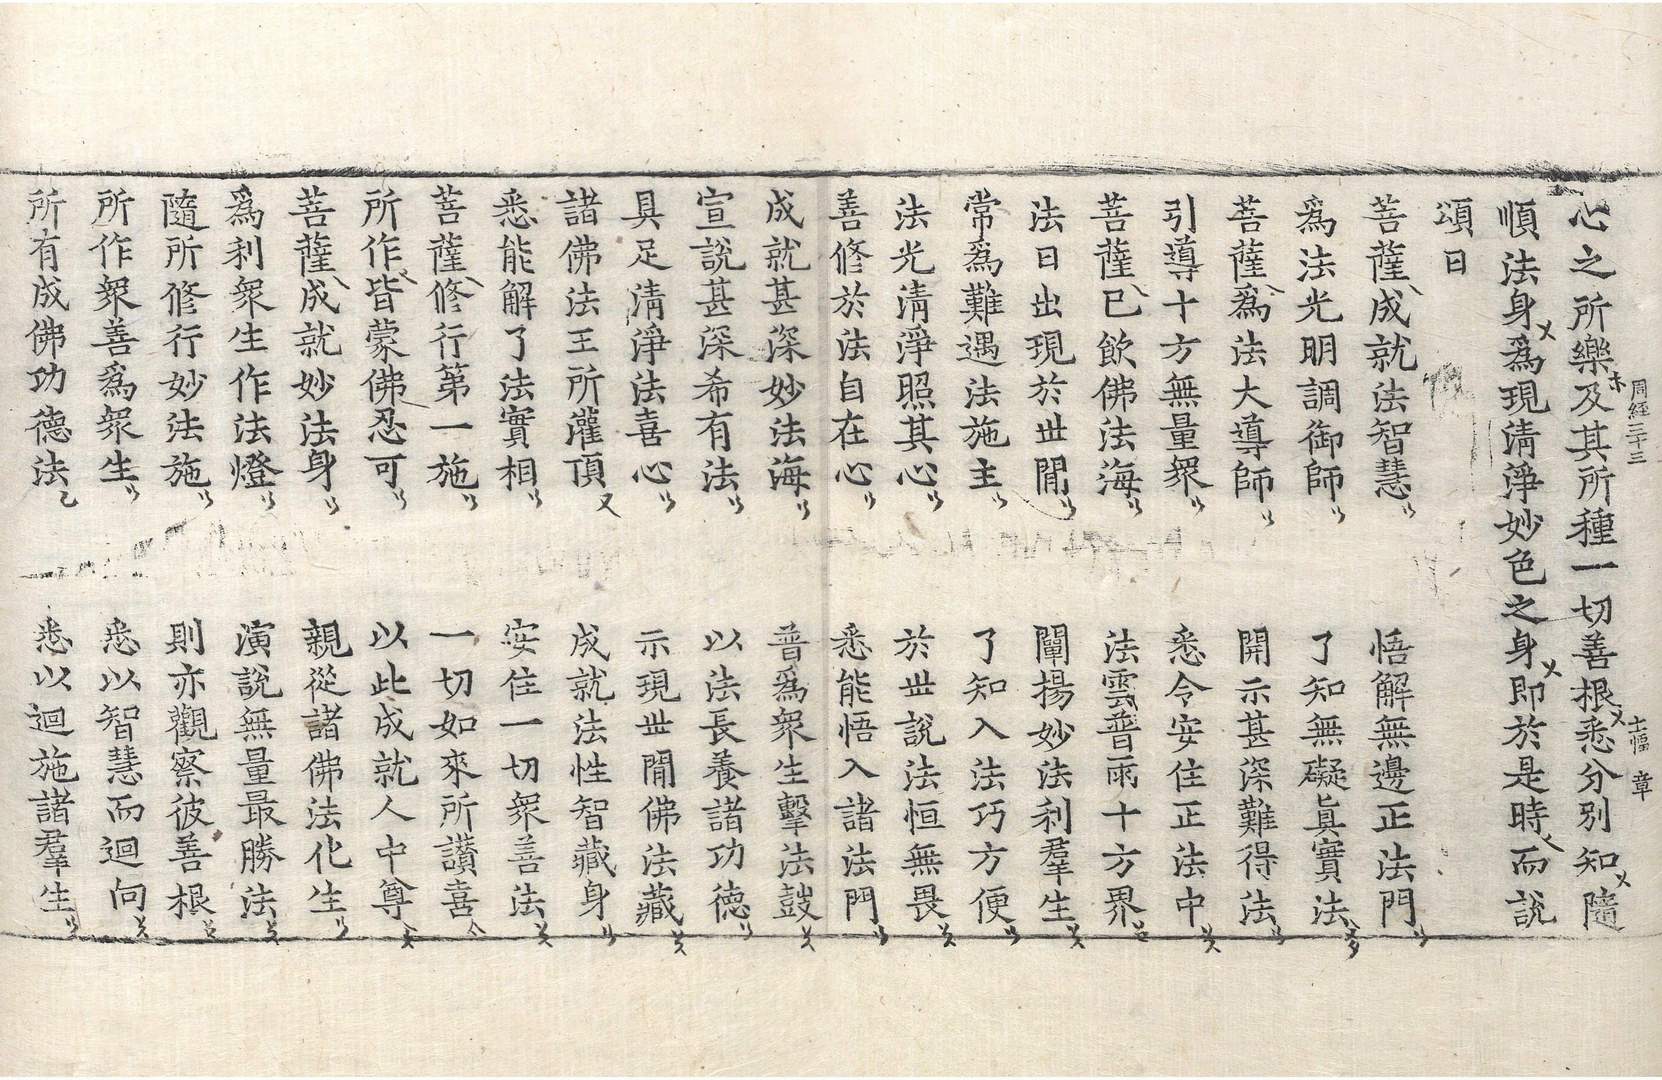 心之所樂及其所種一切善根悉分別知隨
周經三十三 十幅 章
順法身爲現淸淨妙色之身即於是時而說
頌曰
菩薩成就法智慧 悟解無邊正法門
爲法光明調御師 了知無礙眞實法
菩薩爲法大導師 開示甚深難得法
引導十方無量衆 悉令安住正法中
菩薩已飮佛法海 法雲普雨十方界
法日出現於世閒 闡揚妙法利羣生
常爲難遇法施主 了知入法巧方便
法光淸淨照其心 於世說法恒無畏
善修於法自在心 悉能悟入諸法門
成就甚深妙法海 普爲衆生擊法鼓
宣說甚深希有法 以法長養諸功德
具足淸淨法喜心 示現世閒佛法藏
諸佛法王所灌頂 成就法性智藏身
悉能解了法實相 安住一切衆善法
菩薩修行第一施 一切如來所讚喜
所作皆蒙佛忍可 以此成就人中尊
菩薩成就妙法身 親從諸佛法化生
爲利衆生作法燈 演說無量最勝法
隨所修行妙法施 則亦觀察彼善根
所作衆善爲衆生 悉以智慧而迴向
所有成佛功德法 悉以迴施諸羣生